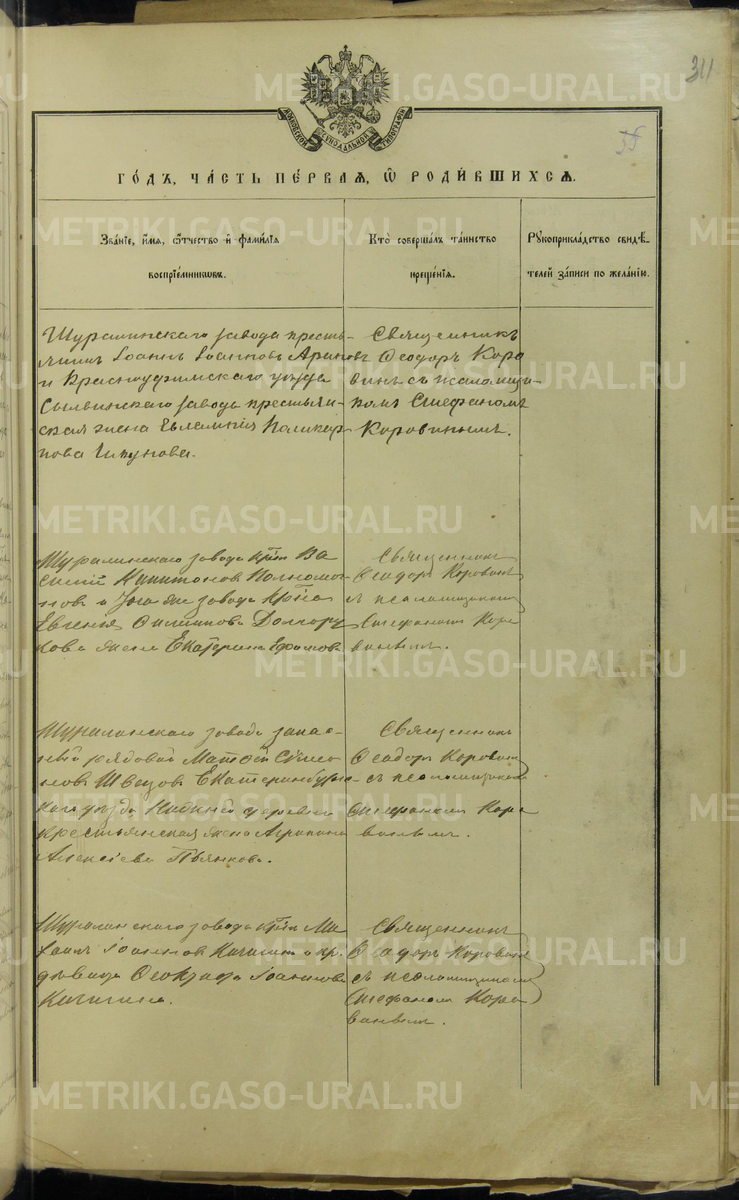 311
35
МОСКОВСКОЙ СѴНОДАЛЬНОЙ ТИПОГРАФІИ
ГО́ДЪ, ЧА́СТЬ ПЕ́РВАѦ, Ѡ҆ РОДИ́ВШИХСѦ.
Зва́нїе, и҆́мѧ, ѻ҆́тчество и҆ фамѝлїѧ
воспрїе́мникѡвъ.
Кто̀ соверша́лъ та́инство
креще́нїѧ.
Рꙋкоприкла́дство свидѣ́-
телей за́писи по жела́нїю.
Шуралинскаго завода кресть-
янинъ Іоаннъ Іоанновъ
и Красноуфимскаго уѣзда
Сылвинскаго завода крестьян-
ская жена Евлампія Поликар-
пова
Священникъ
Ѳеодоръ Коро
винъ съ псаломщи-
комъ Стефаномъ
Коровинымъ.
Шуралинскаго завода кр-нъ Ва
силій
завода
Евгенія Филиппова Долгору
кова жена Екатерина
Священникъ
Ѳеодоръ Коровинъ
съ псаломщикомъ
Стефаномъ Коро
винымъ.
Шуралинскаго завода запас-
ный рядовой Матѳей Симо
новъ Швецовъ Екатеринбург
скаго уѣзда деревни
крестьянская жена Агрипина
Алексіева Пьянкова.
Священникъ
Ѳеодоръ Коровинъ
съ псаломщикомъ
Стефаномъ Коро
винымъ.
Шуралинскаго завода кр-нъ Ми
хаилъ Іоанновъ Кичигинъ и кр.
дѣвица Іоаннова
Кичигина.
Священникъ
Ѳеодоръ Коровинъ
съ псаломщикомъ
Стефаномъ Коро
винымъ.
METRIKI.GASO-URAL.RU